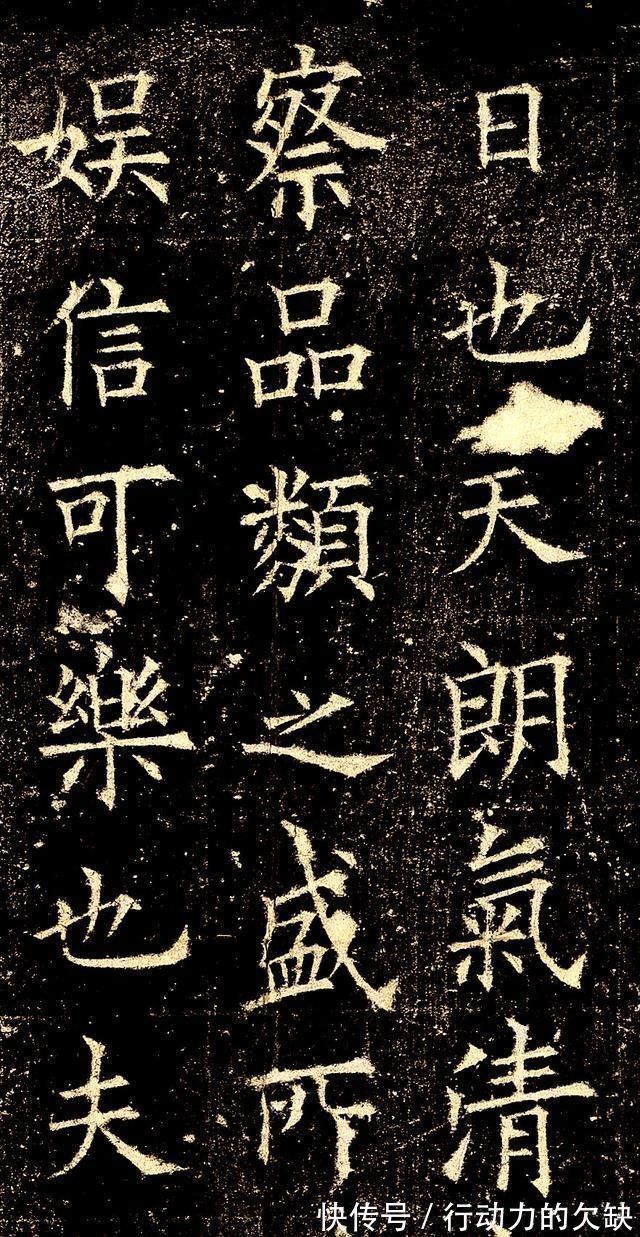 日也天朗氣清
察品類之盛所
娱信可樂也夫
快传号/行动力的欠缺